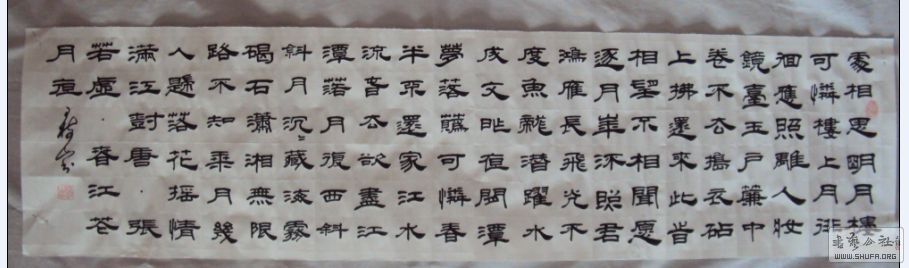 處相思明月樓
可憐樓上月徘
徊應照離人妝
鏡臺玉戶簾中
卷不去搗衣砧
上拂還來此旹
相望不相聞願
逐月華流照君
鴻雁長飛光不
度魚龍潛躍水
成文昨夜閒潭
夢落蘤可憐春
半不還家江水
流春去欲盡江
潭落月復西斜
斜月沉沉藏海霧
碣石瀟湘無限
路不知乘月幾
人歸落花搖情
滿江樹 唐·張
若虛·春江花
月夜
WWW.SHUFA.ORG